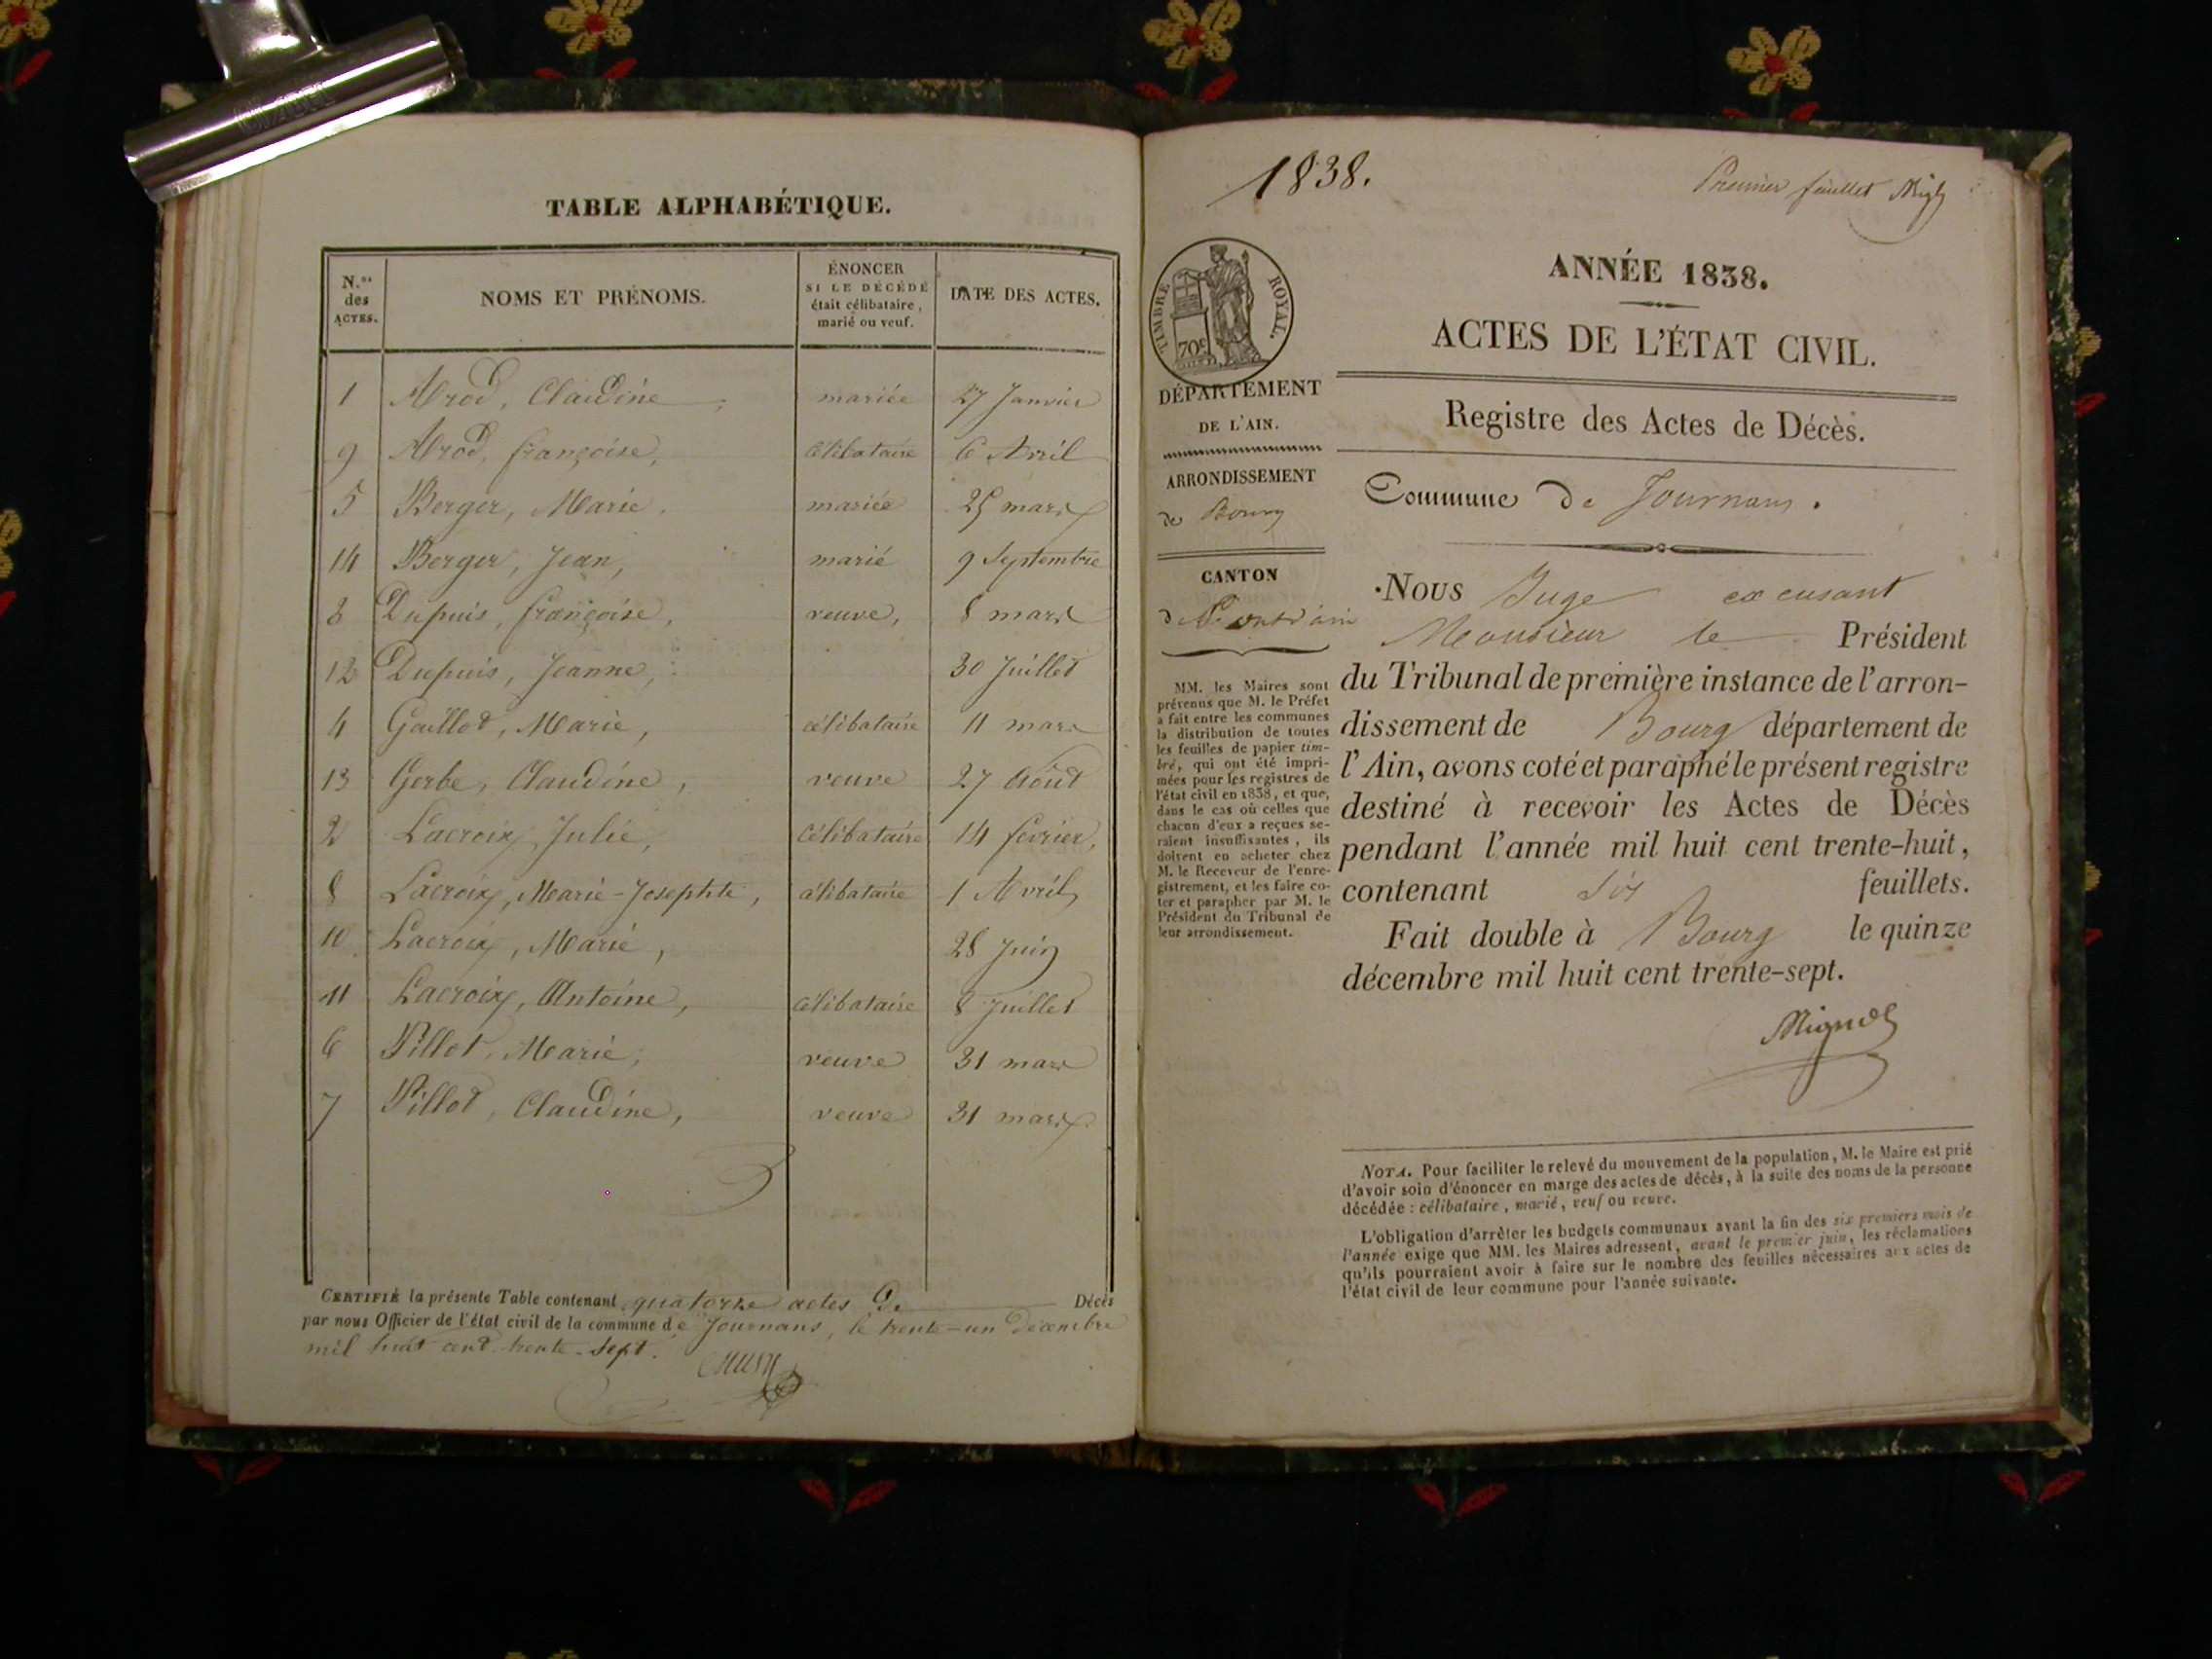 TABLE ALPHABÉTIQUE.
N.os des ACTES.
NOMS ET PRÉNOMS.
ÉNONCER
SI LE DÉCÉDÉ
était célibataire,
marié ou veuf.
DATE DES ACTES.
1 Arod, Claudine, mariée 27 Janvier
9 Arod, françoise, célibataire 6 Avril
5 Berger, Marie, mariée 25 mars
14 Berger, Jean, marié 9 Septembre
3 Dupuis, françoise, veuve, 8 mars
12 Dupuis, Jeanne, 30 Juillet
4 Gaillot, Marie, célibataire 11 mars
13 Gerbe, Claudine, veuve 27 Août
2 Lacroix, Julie, célibataire 14 février,
8 Lacroix, Marie-Josephte, célibataire 1 Avril
10 Lacroix, Marie, 28 Juin
11 Lacroix, Antoine, célibataire 8 Juillet
6 Pillot, Marie, veuve 31 mars
7 Pillot, Claudine, veuve 31 mars
CERTIFIÉ la présente Table contenant quatorze actes de Décès
par nous Officier de l'état civil de la commune de Journans, le trente-un décembre
mil huit cent trente-sept.
1838.
Premier feuillet
TIMBRE ROYAL.
70c
DÉPARTEMENT
DE L'AIN.
ARRONDISSEMENT
de Bourg
CANTON
de Pontdain
MM. les Maires sont
prévenus que M. le Préfet
a fait entre les communes
la distribution de toutes
les feuilles de papier tim-
bré, qui ont été impri-
mées pour les registres de
l'état civil en 1838, et que,
dans le cas où celles que
chacun d'eux a reçues se-
raient insuffisantes, ils
doivent en acheter chez
M. le Receveur de l'enre-
gistrement, et les faire co-
ter et parapher par M. le
Président du Tribunal de
leur arrondissement.
ANNÉE 1838.
ACTES DE L'ÉTAT CIVIL.
Registre des Actes de Décès.
Commune de Journans.
Nous Juge excusant
Monsieur le Président
du Tribunal de première instance de l'arron-
dissement de Bourg département de
l'Ain, avons coté et paraphé le présent registre
destiné à recevoir les Actes de Décès
pendant l'année mil huit cent trente-huit,
contenant six feuillets.
Fait double à Bourg le quinze
décembre mil huit cent trente-sept.
NOTA. Pour faciliter le relevé du mouvement de la population, M. le Maire est prié
d'avoir soin d'énoncer en marge des actes de décès, à la suite des noms de la personne
décédée : célibataire, marié, veuf ou veuve.
L'obligation d'arrêter les budgets communaux avant la fin des six premiers mois de
l'année exige que MM. les Maires adressent, avant le premier juin, les réclamations
qu'ils pourraient avoir à faire sur le nombre des feuilles nécessaires aux actes de
l'état civil de leur commune pour l'année suivante.